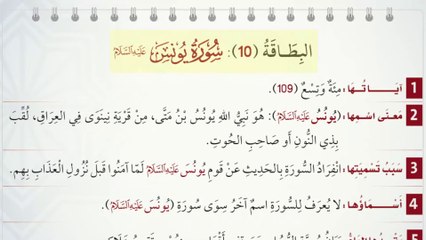 البِطَاقَةُ (10): سُورَةُ يُونُسَ عَلَيْهِ السَّلَامُ
1 آيَاتُهَا: مِئَةٌ وَتِسْعٌ (109).
2 مَعْنَى اسْمِهَا (يُونُسُ عَلَيْهِ السَّلَامُ): هُوَ نَبِيُّ اللهِ يُونُسُ بْنُ مَتَّى، مِنْ قَرْيَةِ نِينَوَى فِي العِرَاقِ، لُقِّبَ
بِذِي النُّونِ أَو صَاحِبِ الحُوتِ.
3 سَبَبُ تَسْمِيَتِهَا: انْفِرَادُ السُّورَةِ بِالحَدِيثِ عَنْ قَومِ يُونُسَ عَلَيْهِ السَّلَامُ لَمَّا آمَنُوا قَبلَ نُزُولِ العَذَابِ بِهِم.
4 أَسْمَاؤُهَا: لا يُعرَفُ لِلسُّورَةِ اسْمٌ آخَرُ سِوَى سُورَةِ (يُونُسَ عَلَيْهِ السَّلَامُ).
5